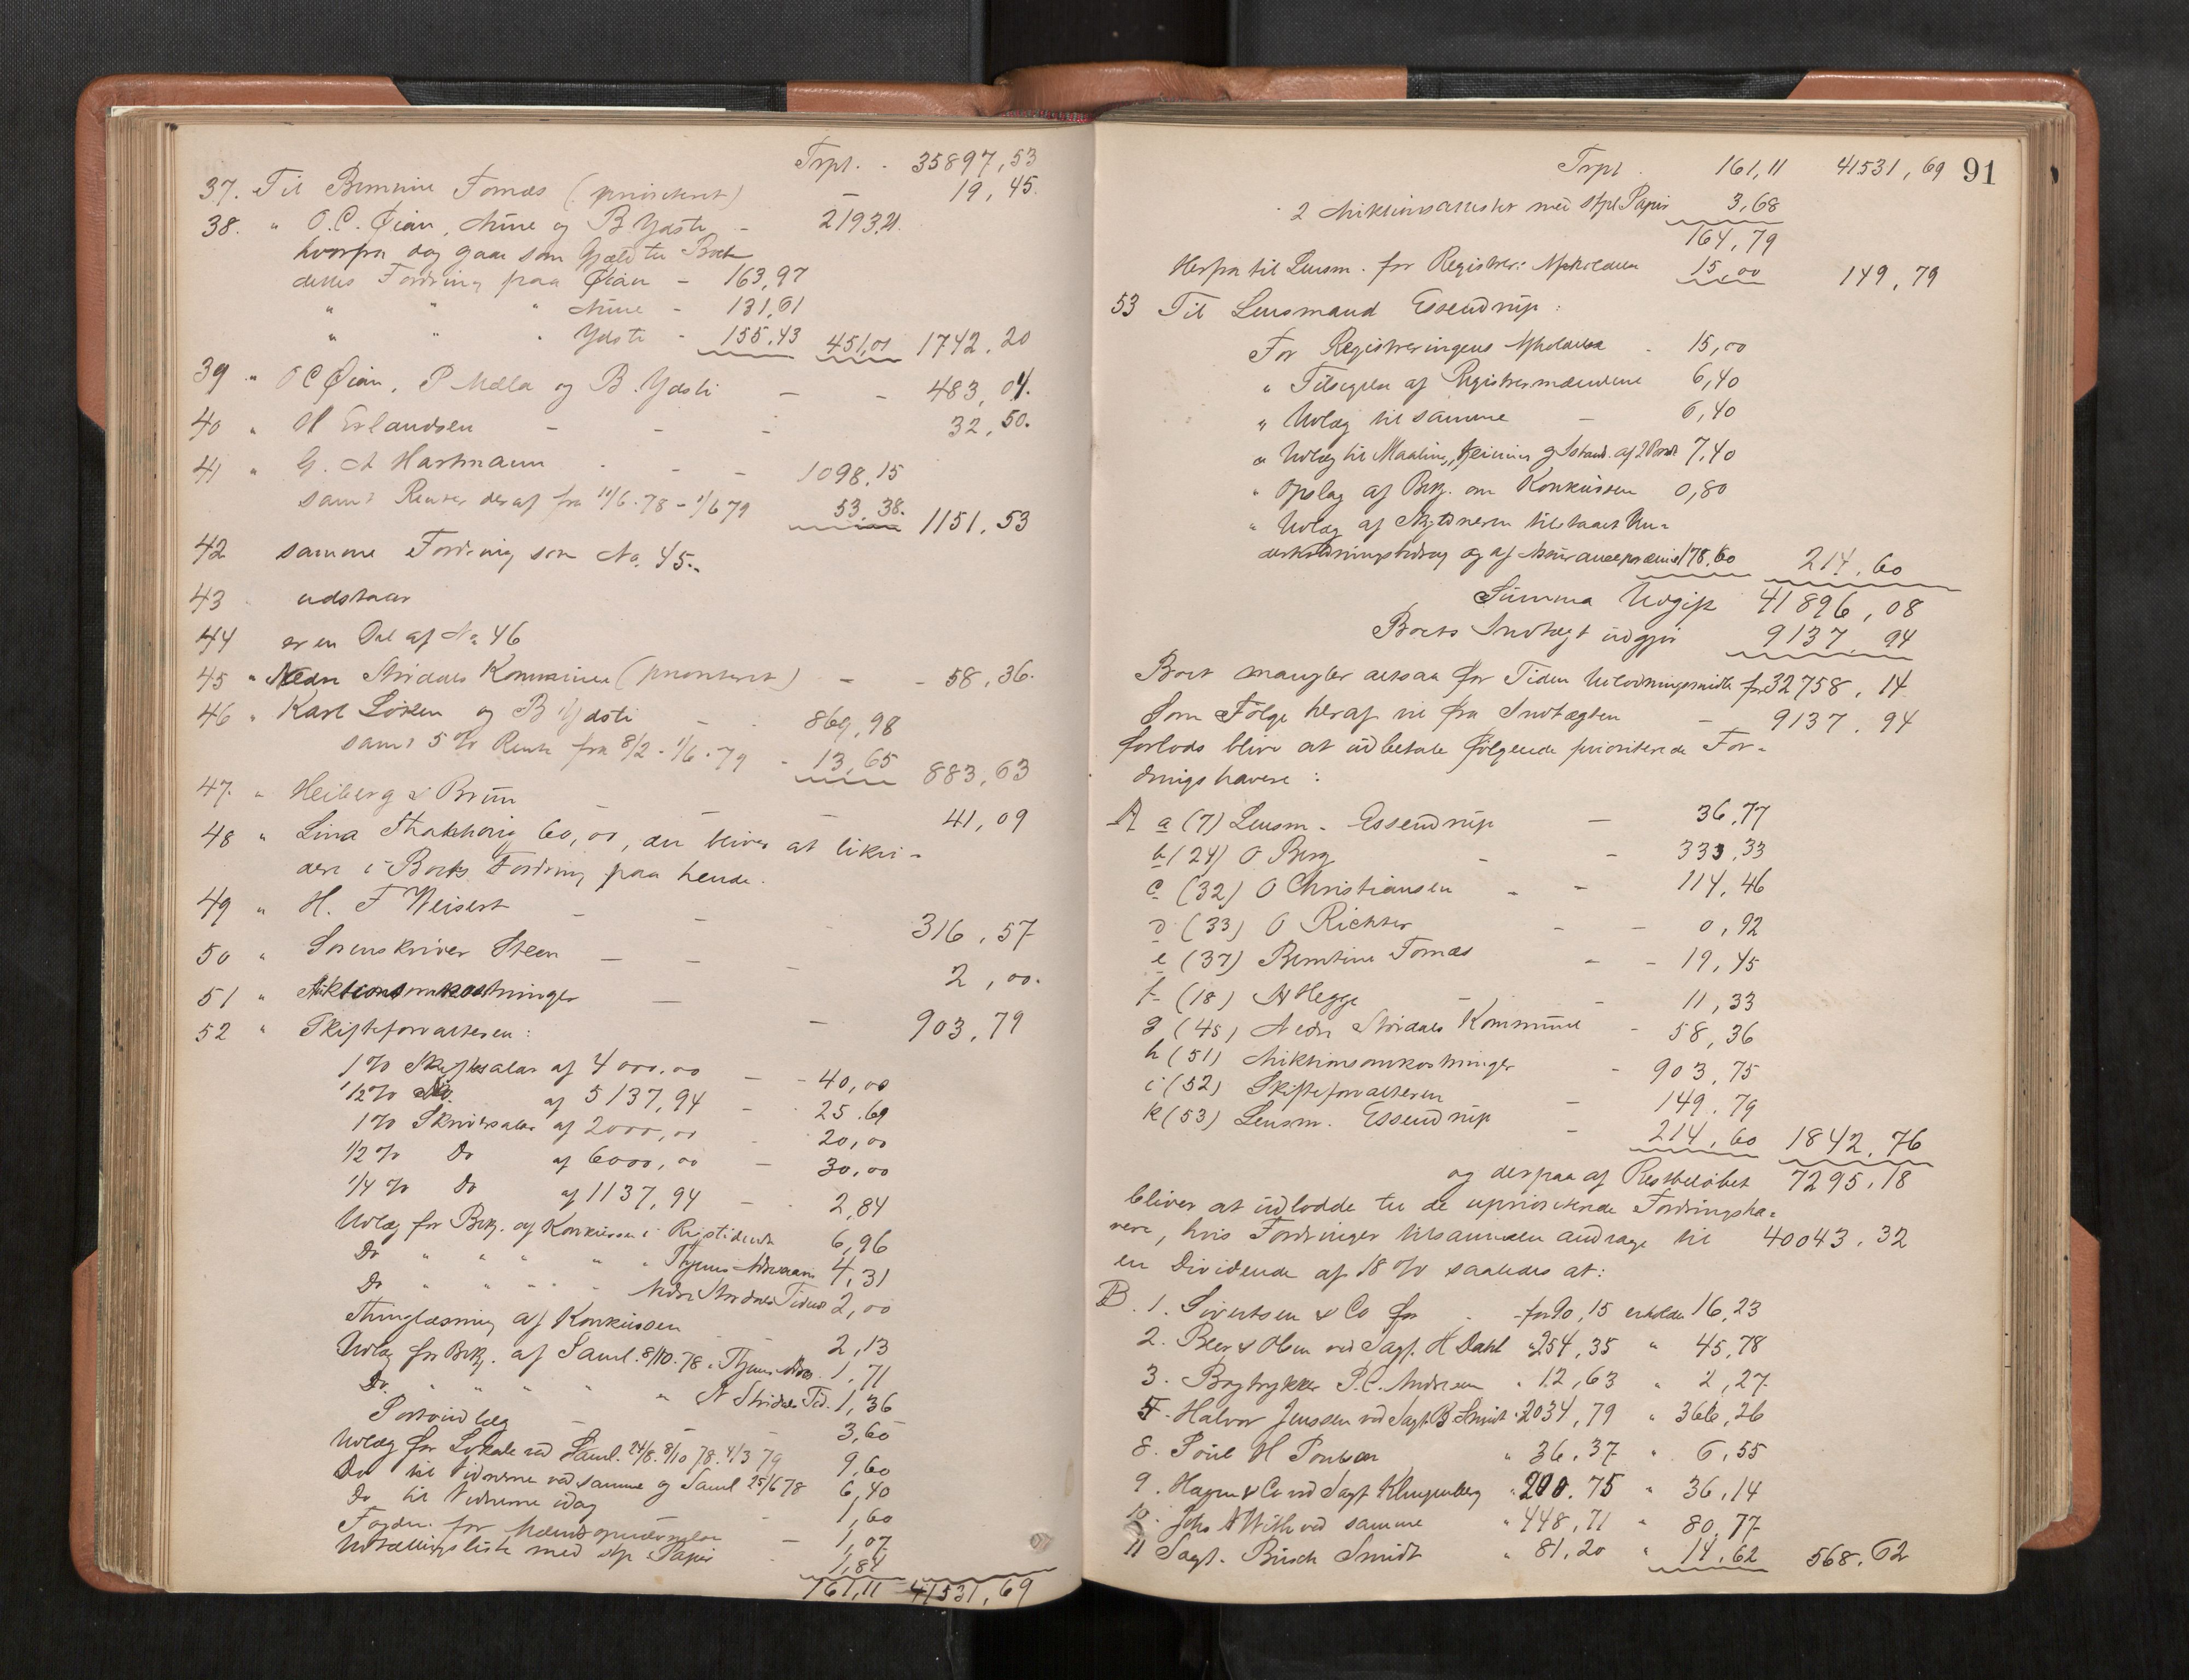 Trpt. - 35897,53
37. Til Berntine Fornæs (prioriteret) — 19,45.
38. " O. C. Øian, Aune og B. Ydsti - 2193,21.
hvorfra dog gaar som Gjæld til Boet
dettes Fordring paa Øian - 163,97
" " " Aune - 131,61
" " " Ydsti - 155,43 451,01 1742,20
39 " O C Øian, P. Mæla og B. Ydsti — - 483,01.
40 " H Erlandsen - - - 32,50.
41 " G. A Hartmann - - - 1098,15
samt Renter deraf fra 11/6.78 - 1/6 79 53,38. 1151,53
42 samme Fordring som No. 45.
43 udstaar
44 er en Del af No 46
45 " Nedre Stjørdals Kommune (prioriteret) — - 58,36.
46 " Karl Løken og B Ydsti - - 869,98
samt 5 % Rente fra 8/2 - 1/6.79 - 13,65 883,63
47. " Heiberg & Bruun — — — 41,09
48 " Lina Stokhaug 60,00, der bliver at likvi-
dere i Boets Fordring paa hende.
49 " H. F Weisert — — - 316,57
50 " Sorenskriver Steen — — — 2,00.
51 " Auktionsomkostninger — — 903,79
52 " Skifteforvalteren:
1 % Skiftesalær af 4000,00 — - 40,00
1/2 % Do. af 5137,94 - - 25.69
1 % Skriversalær af 2000,00 - 20,00
1/2 % Do af 6000,00 — 30,00
1/4 % Do af 1137,94 - - 2,84
Udlæg for Bekj. af Konkursen i Rigstidende 6,96
Do " " " " Thjems Adresseavis 4,31
Do " " " " Nedre Stjørdals Tidende 2,00
Thinglæsning af Konkursen - - 2,13
Udlæg for Bekj. af Saml. 8/10.78 i Thjems Adr. 1,71
Do. " " " " " N Stjørdals Tid. 1,36
Portoudlæg — — - 3,60
Udlæg for Lokale ved Saml. 24/8. 8/10 78. 4/3 79 9,60
Do til Vidnerne ved samme og Saml 25/6 78 6,40
Do til Vidnerne idag - 1,60
Forkyn. for Mændsopnævnelse — 1,07
Udtællingsliste med stp. Papir - 1,84
161,11 41531,69
91
Trpt. 161,11 41531,69
2 Auktionsattester med stpl Papir 3,68
164,79
Herfra til Lensm. for Registrer: Afholdelse 15,00 149,79
53 Til Lensmand Essendrup:
For Registreringens Afholdelse - 15,00
" Tilsigelse af Registrermændene 6,40
" Udlæg til samme — 6,40
" Udlæg til Maaling, Reining og Istands. af 2 Bord. 7,40
" Opslag af Bekj. om Konkursen 0,80
" Udlæg af Skyldneren tilstaaet Un-
derholdningsbidrag og af Assurancepræmie 178,60 214,60
Summa Udgift 41896,08
Boets Indtægt udgjør 9137,94
Boet mangler altsaa for Tiden Udlodningsmidler for 32758,14
Som Følge heraf vil fra Indtægten — 9137.94
forlods blive at udbetale følgende prioriterede For-
dringshavere:
A a (7) Lensm. Essendrup — 36,77
b (24) O Berg - - 333,33
c (32) O Christiansen - - 114,46
d (33) O Richter - - 0,92
e (37) Berntine Fornæs - - 19,45
f (18) N Hegge - - 11,33
g (45) Nedre Stjørdals Kommune - 58,36
h (51) Auktionsomkostninger - 903,75
i (52) Skifteforvalteren — 149.79
k (53) Lensm. Essendrup - 214,60 1842,76
og derpaa af Restbeløbet 7295.18
bliver at udlodde til de uprioriterede Fordringsha-
vere, hvis Fordringer tilsammen andrage til 40043.32
en Dividende af 18 % saaledes at:
B. 1. Sivertsen & Co for - for 90,15 erholder 16,23
2. Beer & Olsen ved Sagf. H Dahl " 254,35 " 45,78
3. Bogtrykker P. C. Andresen " 12,63 " 2,27
5. Halvor Jenssen ved Sagf. B Smidt " 2034,79 " 366,26
8. Poul H Poulsen " 36.37 " 6,55
9. Hagen & Co ved Sagf Klingenberg " 200.75 " 36,14
10. Johs A With ved samme " 448,71 " 80,77
11 Sagf. Busch Smidt " 81,20 " 14,62 568,62